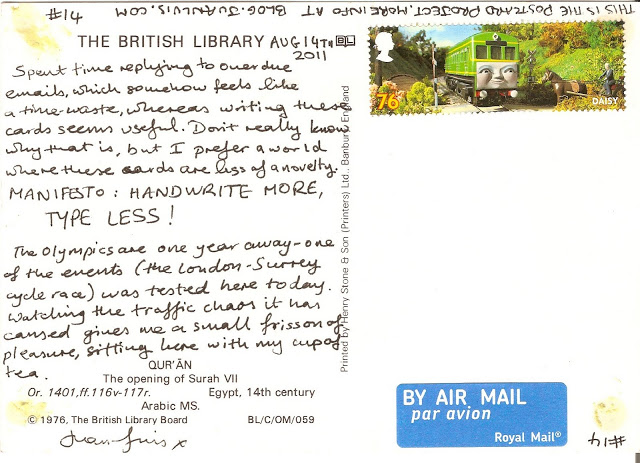 THIS IS THE POSTCARD PROJECT. MORE INFO AT BLOG.JUANLUIS.COM
#14
THE BRITISH LIBRARY
AUG 14TH
2011
Spent time replying to overdue
emails, which somehow feels like
a time-waste, whereas writing these
cards seems useful. Don't really know
why that is, but I prefer a world
where these cards are less of a novelty.
MANIFESTO: HANDWRITE MORE,
TYPE LESS!
The Olympics are one year away - one
of the events (the London-Surrey
cycle race) was tested here today.
Watching the traffic chaos it has
caused gives me a small frisson of
pleasure, sitting here with my cup of
tea.
QUR'ĀN
The opening of Surah VII
Or. 1401,ff.116v-117r. Egypt, 14th century
Arabic MS.
© 1976, The British Library Board BL/C/OM/059
Juan-Luis x
Printed by Henry Stone & Son (Printers) Ltd., Banbury, England
76
DAISY
BY AIR MAIL
par avion
Royal Mail®
#14